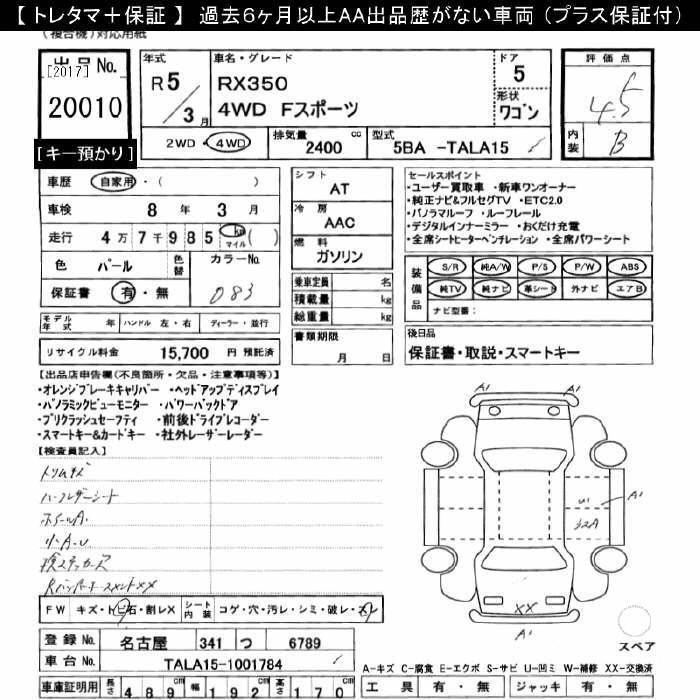 【 トレタマ＋保証 】 過去6ヶ月以上AA出品歴がない車両 （プラス保証付）
(複合機)対応用紙
出品No.
[2017]
20010
[キー預かり]
年式
R5/3月
車名・グレード
RX350
4WD Fスポーツ
ドア
5
形状
ワゴン
2WD・4WD
排気量 2400 cc
型式 5BA -TALA15
評価点
4.5
内装 B
車歴 自家用・( )
車検 8年 3月
走行 4万7千985 km マイル ( )
色 パール 色替 カラーNo.
保証書 有・無 083
モデル年式 年 ハンドル 左・右 ディーラー・並行
リサイクル料金 15,700 円 預託済
シフト AT
冷房 AAC
燃料 ガソリン
乗車定員 名
積載量 kg
総重量 kg
書類期限
月 日
セールスポイント
・ユーザー買取車 ・新車ワンオーナー
・純正ナビ&フルセグTV ・ETC2.0
・パノラマルーフ ・ルーフレール
・デジタルインナーミラー ・おくだけ充電
・全席シートヒーターベンチレーション ・全席パワーシート
装備品
S/R 純A/W P/S P/W ABS
純TV 純ナビ 革シート 外ナビ エアB
ナビ型番：
後日品
保証書・取説・スマートキー
【出品店申告欄(不良箇所・欠品・注意事項等)】
・オレンジブレーキキャリパー ・ヘッドアップディスプレイ
・パノラミックビューモニター ・パワーバックドア
・プリクラッシュセーフティ ・前後ドライブレコーダー
・スマートキー&カードキー ・社外レーザーレーダー
【検査員記入】
トリムキズ
ハーフレザーシート
ホイールA.
リ.A.U
Rバンパー XX
FW キズ・トビ石・割レX シート内装 コゲ・穴・汚レ・シミ・破レ・
登録No. 名古屋 341 つ 6789
車台No. TALA15-1001784
車庫証明用 長さ 489cm 幅 192cm 高さ 170cm
A1
A1
A1
U1
32A
XX
A1
スペア
A−キズ C−腐食 E−エクボ S−サビ U−凹ミ W−補修 XX−交換済
工具 有・無 ジャッキ 有・無